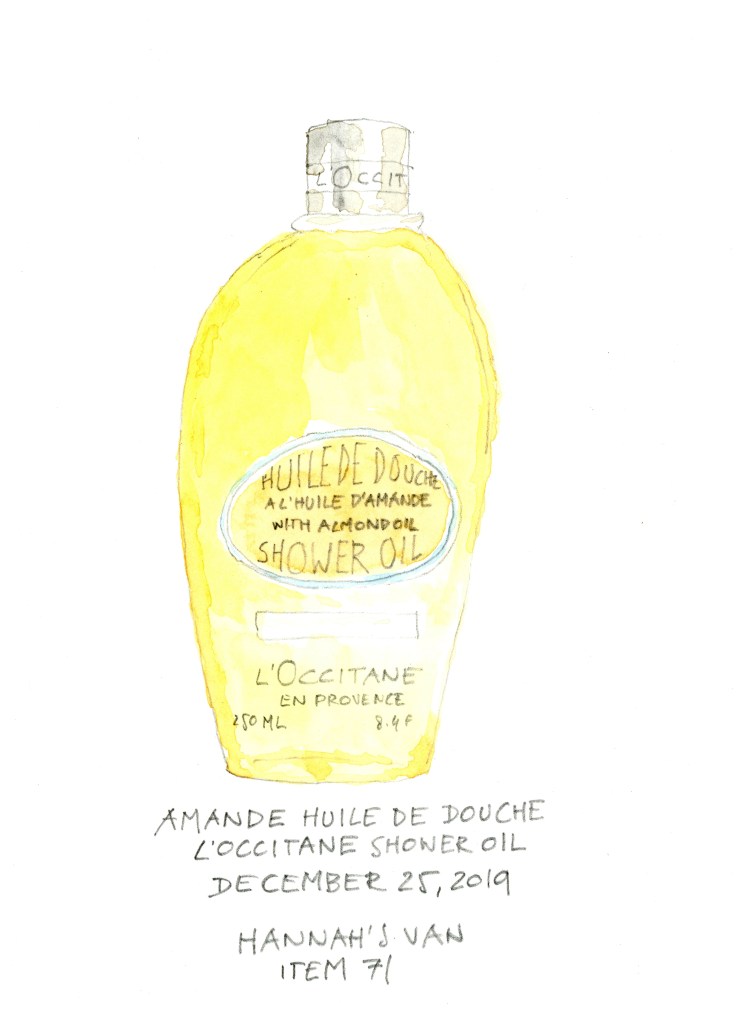 L'OCCIT
HUILE DE DOUCHE
A L'HUILE D'AMANDE
WITH ALMOND OIL
SHOWER OIL
L'OCCITANE
EN PROVENCE
250 ML 8.4 F
AMANDE HUILE DE DOUCHE
L'OCCITANE SHOWER OIL
DECEMBER 25, 2019
HANNAH'S VAN
ITEM 71